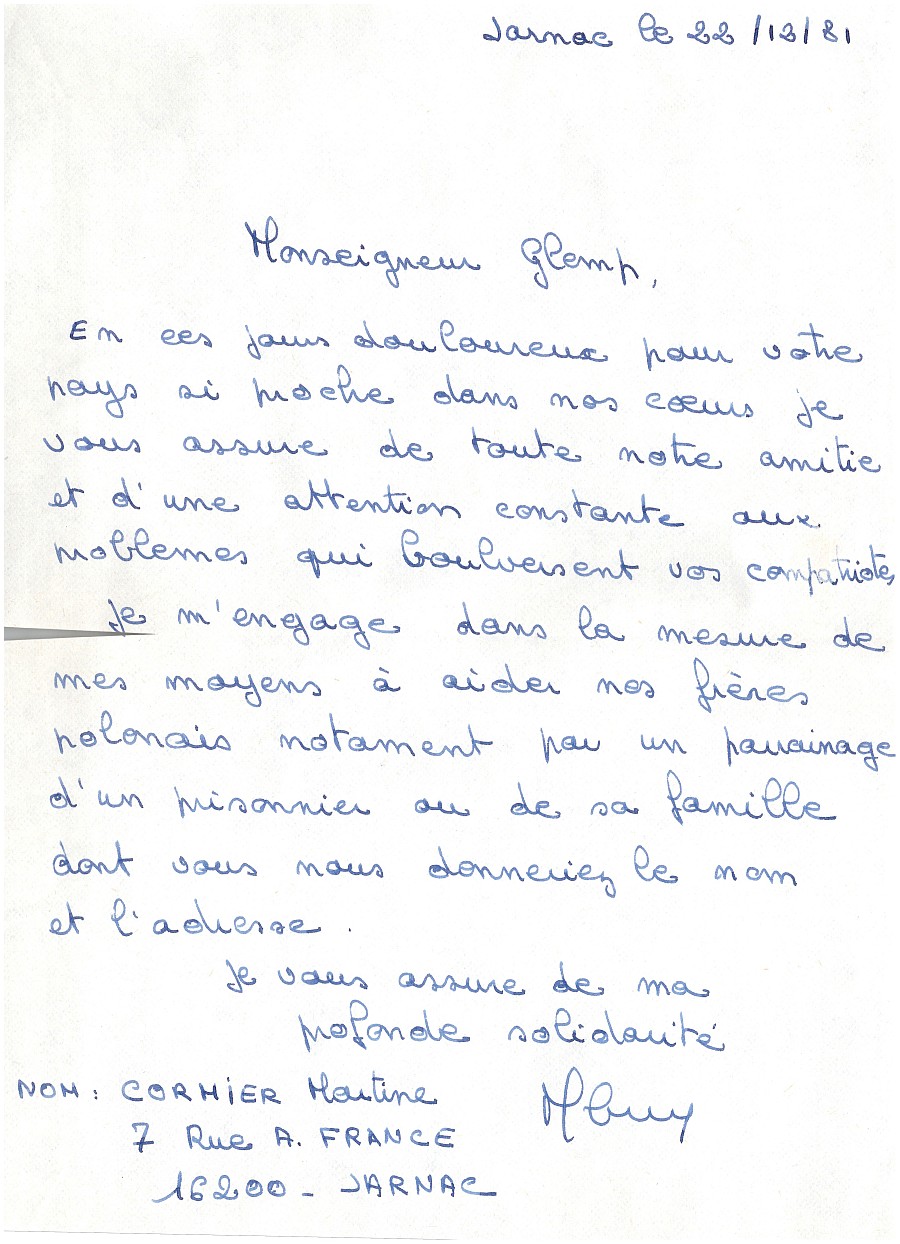 Jarnac le 22/12/81
Monseigneur Glemp,
En ces jours douloureux pour votre
pays si proche dans nos cœurs je
vous assure de toute notre amitie
et d'une attention constante aux
problemes qui boulversent vos compatriotes
Je m'engage dans la mesure de
mes moyens à aider nos frères
polonais notament par un parrainage
d'un prisonnier ou de sa famille
dont vous nous donneriez le nom
et l'adresse.
Je vous assure de ma
profonde solidarité
NOM : CORMIER Martine
7 Rue A. FRANCE
16200 - JARNAC